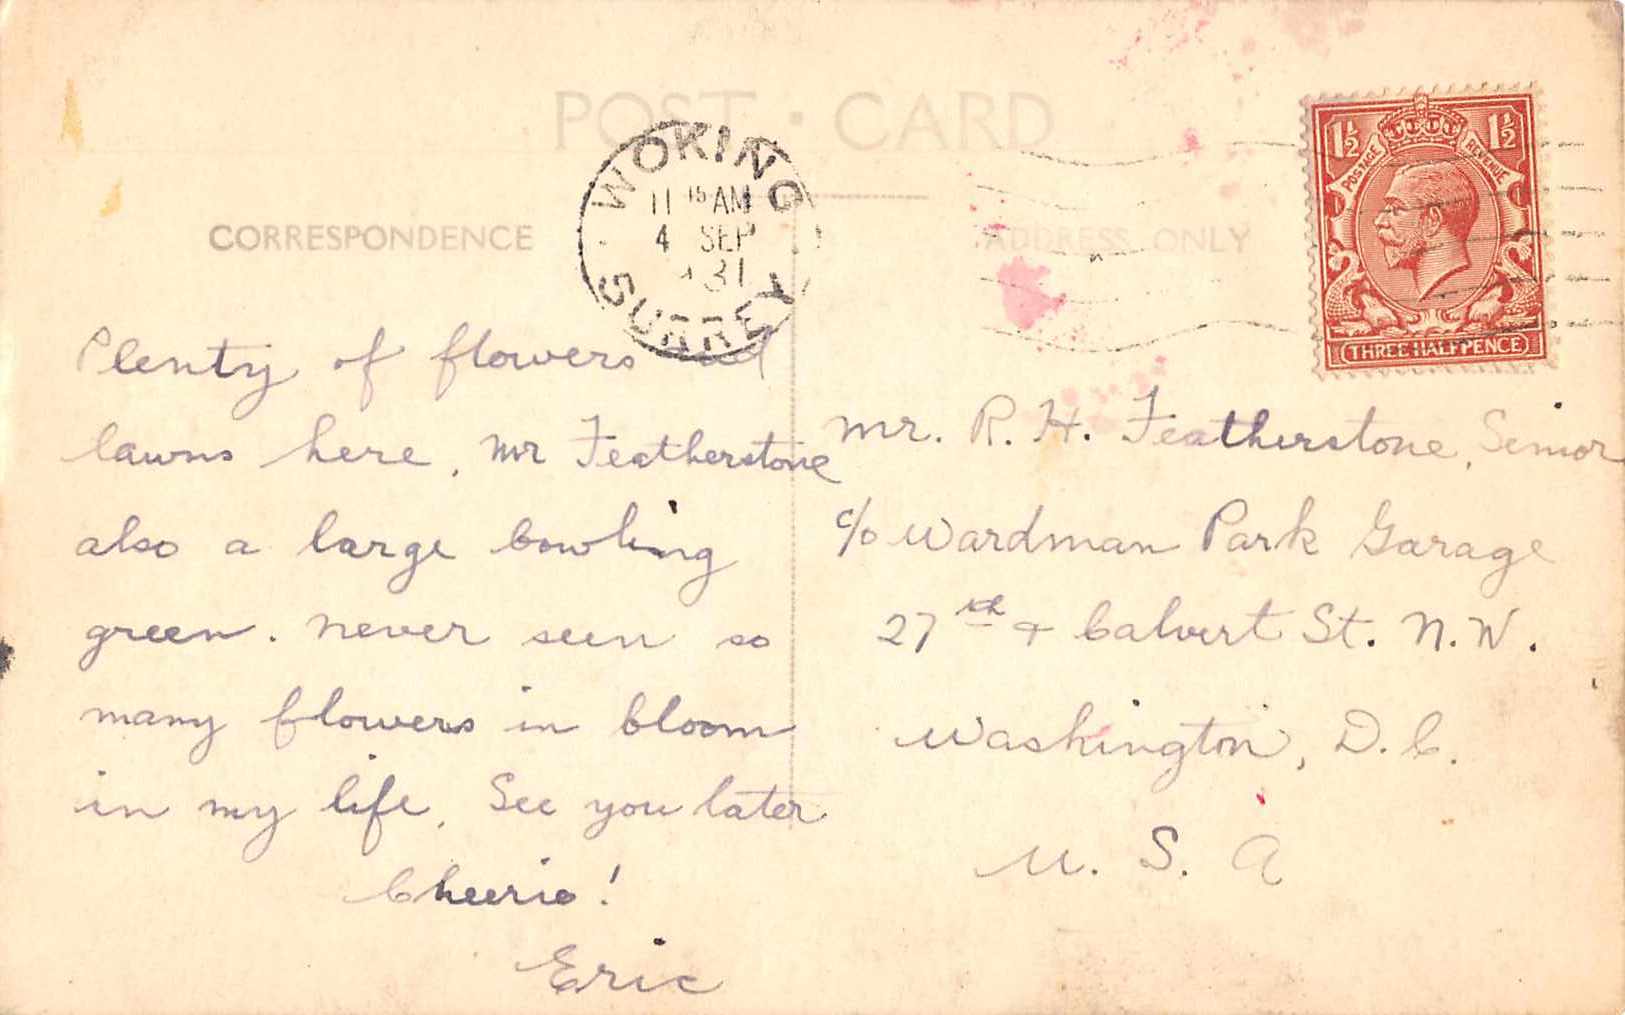 POST · CARD
CORRESPONDENCE
ADDRESS ONLY
WOKING
11 15 AM
4 SEP
31
SURREY
1½ 1½
POSTAGE REVENUE
THREE HALFPENCE
Plenty of flowers and
lawns here, Mr Featherstone
also a large bowling
green. Never seen so
many flowers in bloom
in my life. See you later
Cheerio!
Eric
Mr. R. H. Featherstone, Senior
c/o Wardman Park Garage
27th + Calvert St. N.W.
Washington, D.C.
U. S. A